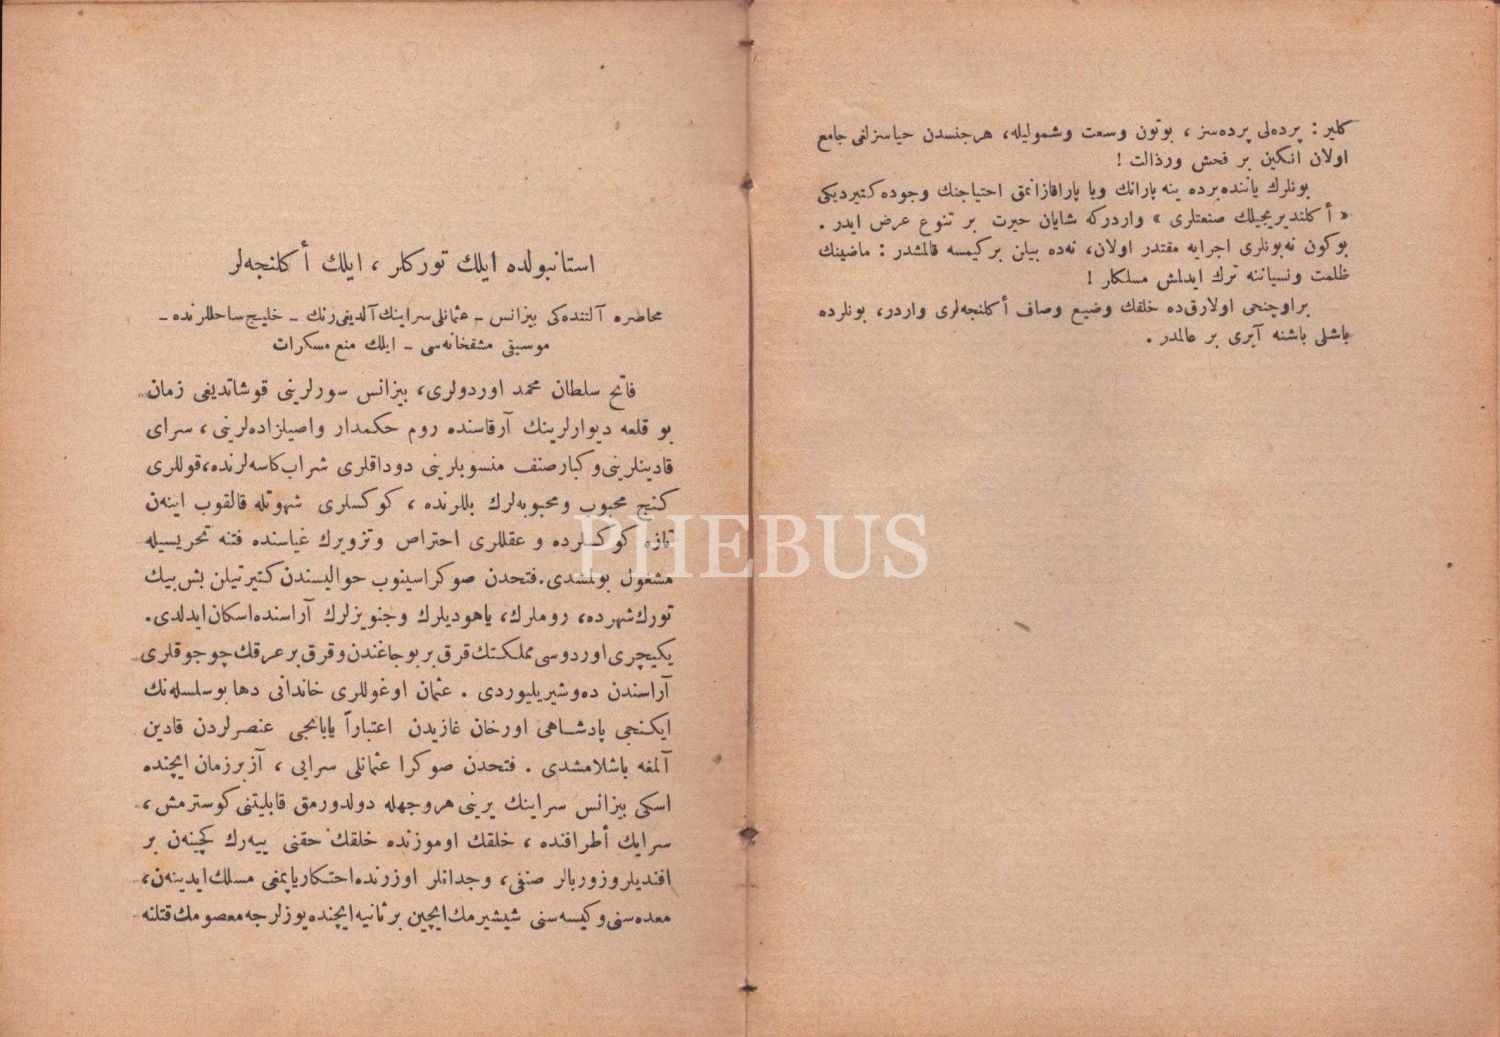 كلیر : پرده‌لی پرده‌سز ، بوتون وسعت وشمولیله، هرجنسدن حیاسزلغی جامع
اولان انكین بر فحش ورذالت !
بونلرك یاننده‌برده ینه پارانك ویا پاراقازانمق احتیاجنك وجوده‌كتیردیكی
« أكلندیریجیلك صنعتلری » واردركه شایان حیرت بر تنوع عرض ایدر .
بوكون نه‌بونلری اجرایه مقتدر اولان، نه‌ده بیلن بركیمسه قالمشدر : ماضینك
ظلمت ونسیاننه ترك ایدلمش مسلكلر !
براوچنجی اولارق‌ده خلقك وضیع وصاف أكلنجه‌لری واردر، بونلرده
باشلی باشنه آیری بر عالمدر .
استانبولده ایلك توركلر ، ایلك أكلنجه‌لر
محاصره آلتنده‌كی بیزانس ـ عثمانلی سراینك آلدیغی رنك ـ خلیج ساحللرنده ـ
موسیقی مشقخانه‌سی ـ ایلك منع مسكرات
فاتح سلطان محمد اوردولری، بیزانس سورلرینی قوشاتدیغی زمان
بو قلعه دیوارلرینك آرقاسنده روم حكمدار واصیلزاده‌لرینی ، سرای
قادینلرینی وكبارصنف منسوبلرینی دوداقلری شراب‌كاسه‌لرنده، قوللری
كنج محبوب ومحبوبه‌لرك بللرنده ، كوكسلری شهوتله قالقوب اینه‌ن
تازه كوكسلرده و عقللری احتراص وتزویرك غیاسنده فتنه تحریسیله
مشغول بولمشدی. فتحدن صوكرا سینوب حوالیسندن كتیرتیلن بش بیك
تورك شهرده، روملرك، یاهودیلرك وجنویزلرك آراسنده اسكان ایدلدی.
یكیچری اوردوسی مملكتك قرق بربوجاغندن وقرق برعرقك چوجوقلری
آراسندن ده‌وشیریلیوردی . عثمان اوغوللری خاندانی دها بوسلسله‌نك
ایكنجی پادشاهی اورخان غازیدن اعتباراً یابانجی عنصرلردن قادین
آلمغه باشلامشدی . فتحدن صوكرا عثمانلی سرایی ، آزبرزمان ایچنده
اسكی بیزانس سراینك یرینی هروجهله دولدورمق قابلیتنی كوسترمش ،
سرایك أطرافنده ، خلقك اوموزنده خلقك حقنی ییه‌رك كچینه‌ن بر
افندیلر وزوربالر صنفی، وجدانلر اوزرنده احتكار یاپمغی مسلك ایدینه‌ن،
معده‌سنی وكیسه‌سنی شیشیرمك ایچین برثانیه ایچنده یوزلرجه معصومك قتلنه
PHEBUS